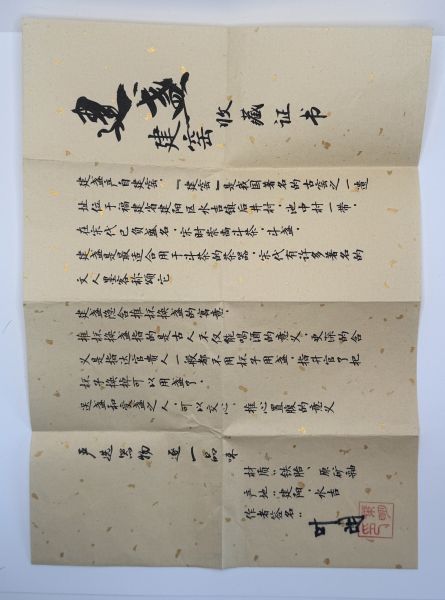 建盏
建窑收藏证书
建盏立自建窑 “建窑”是我国著名的古窑之一遗
址位于福建省建阳区水吉镇后井村，池中村一带，
在宋代已负盛名，宋时崇尚斗茶，斗盏，
建盏是最适合用于斗茶的茶器，宋代有许多著名的
文人墨客称颂它
建盏隐含推杯换盏的寓意，
推杯换盏指的是古人不仅能喝酒的意义，更深的含
义是指达官贵人一般都不用杯子用盏，指升官了把
杯子换掉可以用盏了，
送盏和受盏之人，可以交心，推心置腹的意义
严选器物 逐一品味
材质：铁胎，原矿釉
产地：建阳，水吉
作者签名：
叶